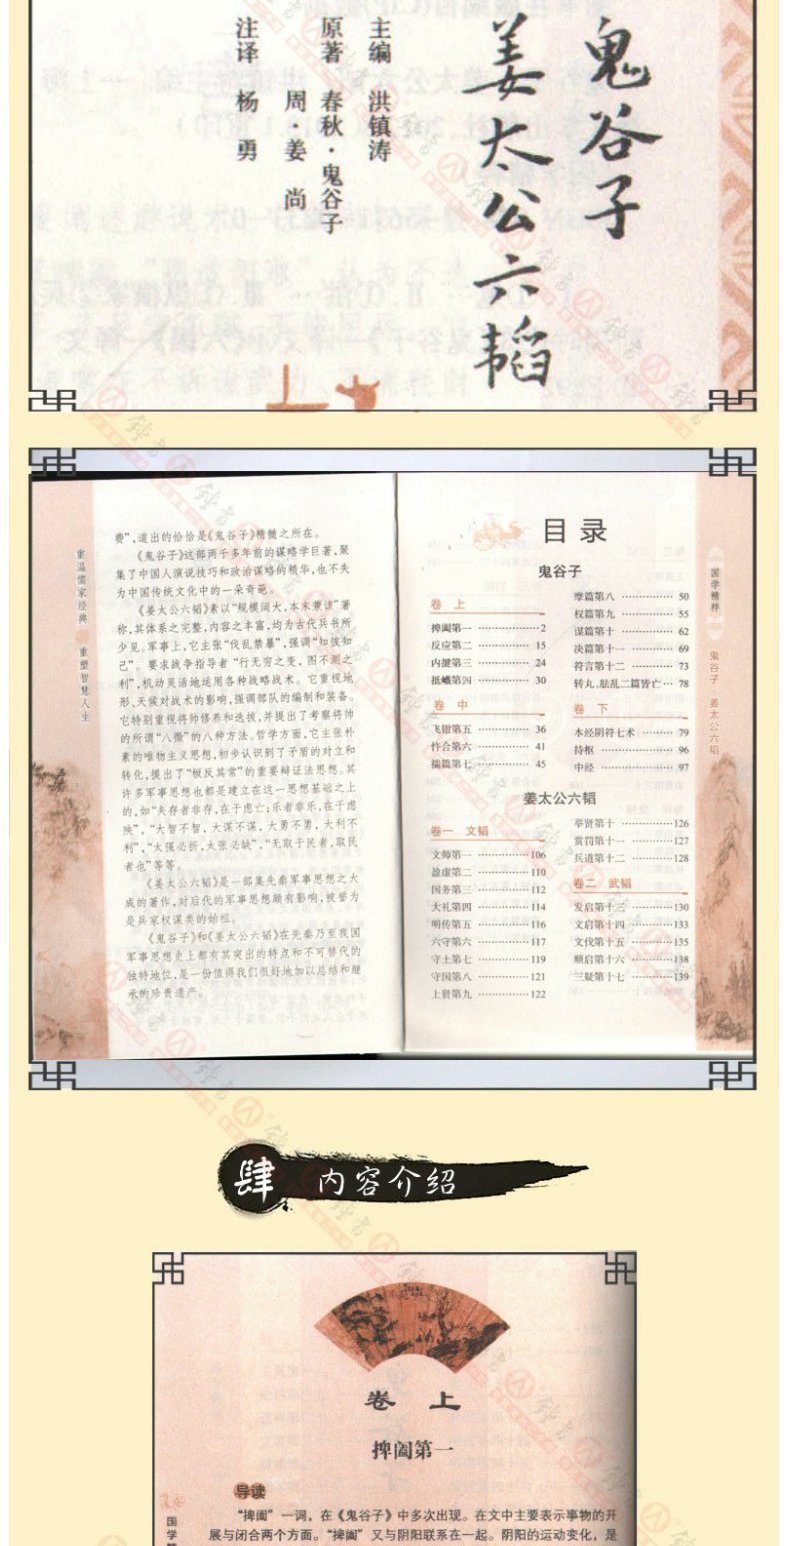 鬼谷子
姜太公六韬
主编 洪镇涛
原著 春秋·鬼谷子
周·姜尚
注译 杨勇
重温儒家经典 重塑智慧人生
费”,道出的恰恰是《鬼谷子》精髓之所在。
《鬼谷子》这部两千多年前的谋略学巨著,聚
集了中国人演说技巧和政治谋略的精华,也不失
为中国传统文化中的一朵奇葩。
《姜太公六韬》素以“规模阔大,本末兼该”著
称,其体系之完整,内容之丰富,均为古代兵书所
少见。军事上,它主张“伐乱禁暴”,强调“知彼知
己”。要求战争指导者“行无穷之变,图不测之
利”,机动灵活地运用各种战略战术。它重视地
形、天候对战术的影响,强调部队的编制和装备。
它特别重视将帅修养和选拔,并提出了考察将帅
的所谓“八徵”的八种方法。哲学方面,它主张朴
素的唯物主义思想,初步认识到了矛盾的对立和
转化,提出了“极反其常”的重要辩证法思想。其
许多军事思想也都是建立在这一思想基础之上
的,如“夫存者非存,在于虑亡;乐者非乐,在于虑
殃”,“大智不智,大谋不谋,大勇不勇,大利不
利”,“太强必折,太张必缺”,“无取于民者,取民
者也”等等。
《姜太公六韬》是一部集先秦军事思想之大
成的著作,对后代的军事思想颇有影响,被誉为
是兵家权谋类的始祖。
《鬼谷子》和《姜太公六韬》在先秦乃至我国
军事思想史上都有其突出的特点和不可替代的
独特地位,是一份值得我们很好地加以总结和继
承的珍贵遗产。
目录
鬼谷子
卷 上
捭阖第一 ……………2
反应第二 …………… 15
内揵第三 …………… 24
抵巇第四 …………… 30
卷 中
飞钳第五 …………… 36
忤合第六 …………… 41
揣篇第七 …………… 45
摩篇第八 …………… 50
权篇第九 …………… 55
谋篇第十 …………… 62
决篇第十一 ………… 69
符言第十二 ………… 73
转丸、胠乱二篇皆亡… 78
卷 下
本经阴符七术 ……… 79
持枢 ………………… 96
中经 ………………… 97
姜太公六韬
卷一 文韬
文师第一 ……………106
盈虚第二 ……………110
国务第三 ……………112
大礼第四 ……………114
明传第五 ……………116
六守第六 ……………117
守土第七 ……………119
守国第八 ……………121
上贤第九 ……………122
举贤第十 ……………126
赏罚第十一 …………127
兵道第十二 …………128
卷二 武韬
发启第十三 …………130
文启第十四 …………133
文伐第十五 …………135
顺启第十六 …………138
三疑第十七 …………139
国学精粹
鬼谷子 姜太公六韬
肆 内容介绍
卷 上
捭阖第一
导读
“捭阖”一词,在《鬼谷子》中多次出现。在文中主要表示事物的开
展与闭合两个方面。“捭阖”又与阴阳联系在一起。阴阳的运动变化,是
国学